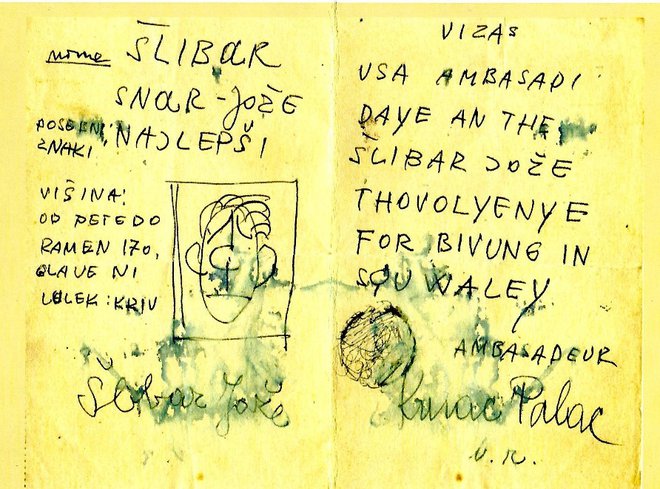 nome ŠLIBAR
SNAR-JOŽE
POSEBNI NAJLEPŠI
ZNAKI
VIŠINA:
OD PETE DO
RAMEN 170,
GLAVE NI
LULEK: KRIV
Šlibar Jože
VIZAS
USA AMBASADI
DAYE AN THE
ŠLIBAR JOŽE
THOVOLYENYE
FOR BIVUNG IN
SQU WALEY
AMBASADEUR
Palac